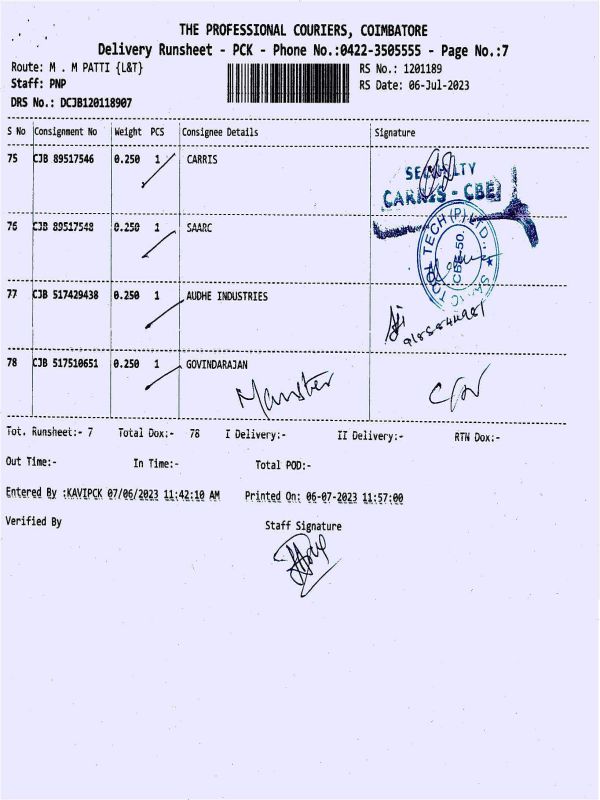 THE PROFESSIONAL COURIERS, COIMBATORE
Delivery Runsheet - PCK - Phone No.:0422-3505555 - Page No.:7
Route: M . M PATTI {L&T} RS No.: 1201189
Staff: PNP RS Date: 06-Jul-2023
DRS No.: DCJB120118907
S No Consignment No Weight PCS Consignee Details Signature
75 CJB 89517546 0.250 1 CARRIS
CARRIS - CBE
76 CJB 89517548 0.250 1 SAARC
77 CJB 517429438 0.250 1 AUDHE INDUSTRIES
78 CJB 517510651 0.250 1 GOVINDARAJAN
Tot. Runsheet:- 7 Total Dox:- 78 I Delivery:- II Delivery:- RTN Dox:-
Out Time:- In Time:- Total POD:-
Entered By :KAVIPCK 07/06/2023 11:42:10 AM Printed On: 06-07-2023 11:57:00
Verified By Staff Signature